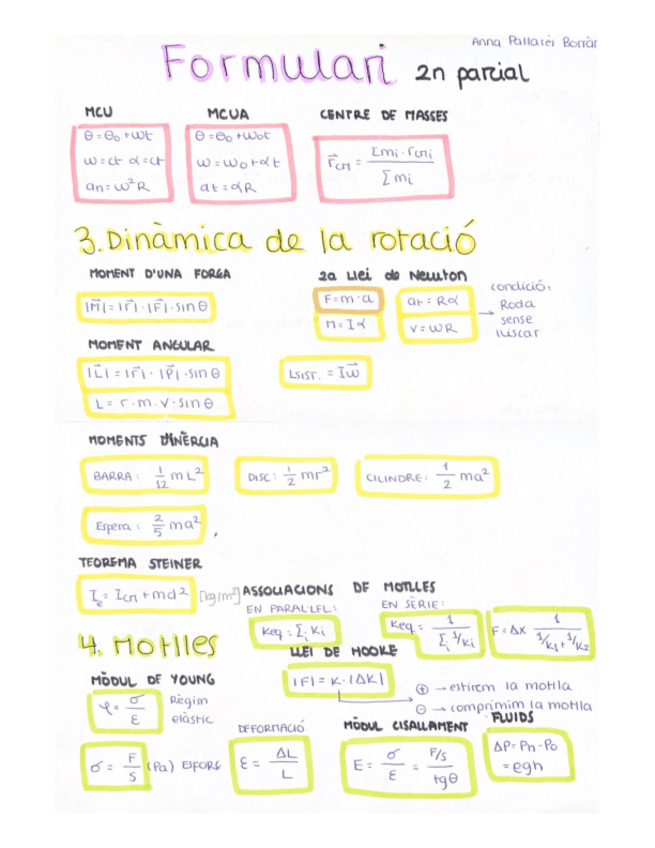 Anna Pallarés Borràr
Formulari 2n parcial
MCU
θ=θ₀+ωt
ω=ct α=ct
an=ω²R
MCUA
θ=θ₀+ω₀t
ω=ω₀+αt
at=αR
CENTRE DE MASSES
r⃗cm = Σmi·rcmi / Σmi
3. Dinàmica de la rotació
MOMENT D'UNA FORÇA
|M⃗|=|r⃗|·|F⃗|·sinθ
2a Llei de Newton
F=m·a
M=Iα
at=Rα
v=ωR
→ condició:
Roda
sense
lliscar
MOMENT ANGULAR
|L⃗|=|r⃗|·|P⃗|·sinθ
L=r·m·v·sinθ
Lsist. = Iω⃗
MOMENTS D'INÈRCIA
BARRA: 1/12 mL²
DISC: 1/2 mr²
CILINDRE: 1/2 ma²
Espera: 2/5 ma²
TEOREMA STEINER
Ie=Icm+md² [kg/m²]
ASSOCIACIONS DE MOTLLES
EN PARAL·LEL:
Keq=Σi Ki
EN SÈRIE:
Keq = 1 / Σi 1/Ki
F=Δx 1 / 1/K1+1/K2
4. Motlles
LLEI DE HOOKE
|F|=K·|ΔX|
⊕ → estirem la motlla
⊖ → comprimim la motlla
MÒDUL DE YOUNG
φ= σ/ε
Règim
elàstic
σ = F/S (Pa) ESFORÇ
DEFORMACIÓ
ε = ΔL/L
MÒDUL CISALLAMENT
E = σ/ε = F/S / tgθ
FLUIDS
ΔP=Ph-P0
=ρgh